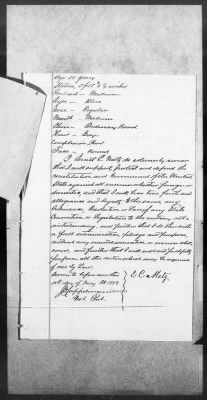 Age 55 years
Stature, 5 feet 8 ½ inches
Forehead — Medium
Eyes — Blue
Nose — Regular
Mouth — Medium
Chin — Round
Hair — Gray
Complexion — Fair
Face — Round
I, E. C. Metz do solemnly swear
that I will support, protect and defend the
Constitution and Government of the United
States against all enemies, whether foreign or
domestic, and that I will bear true faith and
allegiance and loyalty to the same, any
ordinance, resolution or law of any State
Convention or Legislature to the contrary not-
withstanding, and further that I do this with
a full determination, pledge and purpose,
without any mental reservation or evasion what-
soever, and further that I will well and faithfully
perform all the duties which may be required
of me by law.
Sworn to before me this
1st day of May
E C Metz
Not. Pub.